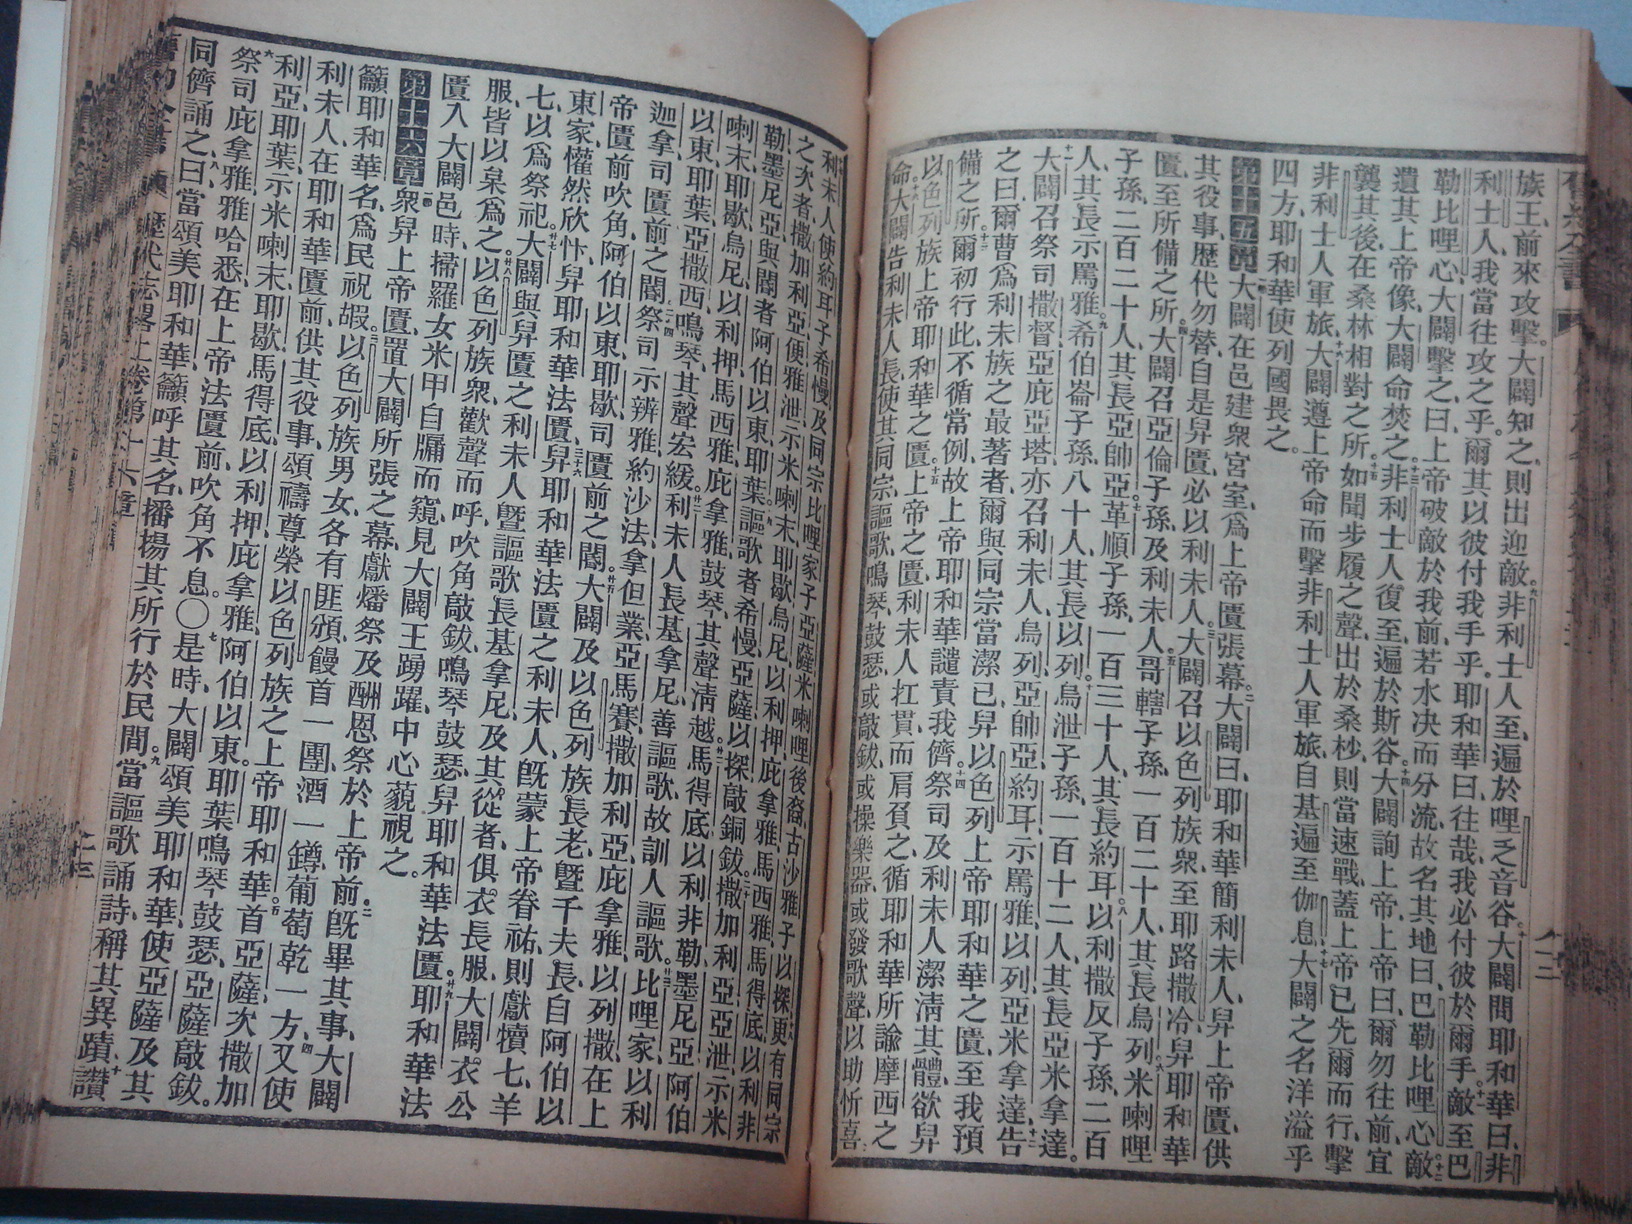 族王、前來攻擊、大闢知之、則出迎敵。九非利士人至、遍於哩乏音谷。十大闢問耶和華曰、非
利士人、我當往攻之乎。爾其以彼付我手乎。耶和華曰、往哉、我必付彼於爾手。十一敵至巴
勒比哩心、大闢擊之曰、上帝破敵於我前、若水決而分流、故名其地曰巴勒比哩心。十二敵
遺其上帝像、大闢命焚之。十三非利士人復至、遍於斯谷。十四大闢詢上帝、上帝曰、爾勿往前、宜
襲其後、在桑林相對之所。十五如聞步履之聲、出於桑杪、則當速戰、蓋上帝已先爾而行、擊
非利士人軍旅。十六大闢遵上帝命而擊非利士人軍旅、自基遍至伽息。十七大闢之名洋溢乎
四方、耶和華使列國畏之。
第十五章 大闢在邑建衆宮室、爲上帝匱張幕。二大闢曰、耶和華簡利未人、舁上帝匱、供
其役事、歷代勿替、自是舁匱、必以利未人。三大闢召以色列族衆至耶路撒冷、舁耶和華
匱、至所備之所。四大闢召亞倫子孫、及利未人。五哥轄子孫、一百二十人、其長烏列。六米喇哩
子孫、二百二十人、其長亞帥亞。七革順子孫、一百三十人、其長約耳。八以利撒反子孫、二百
人、其長示罵雅。九希伯崙子孫、八十人、其長以列。十烏泄子孫、一百十二人、其長亞米拿達。
十一大闢召祭司撒督、亞庇亞塔、亦召利未人、烏列、亞帥亞、約耳、示罵雅、以列、亞米拿達、十二告
之曰、爾曹爲利未族之最著者、爾與同宗當潔己、舁以色列上帝耶和華之匱、至我預
備之所。十三爾初行此、不循常例、故上帝耶和華譴責我儕。十四祭司及利未人潔淸其體、欲舁
以色列族上帝耶和華之匱。十五上帝之匱、利未人扛貫而肩負之、循耶和華所諭摩西之
命。十六大闢告利未人長、使其同宗謳歌、鳴琴、鼓瑟、或敲鈸、或操樂器、或發歌聲、以助忻喜。
利未人使約耳子希慢、及同宗比哩家子亞薩、米喇哩後裔、古沙雅子以探、更有同宗
之次者、撒加利亞、便、雅泄、示米喇末、耶歇、烏尼、以利押、庇拿雅、馬西雅、馬得底、以利非
勒、墨尼亞、與閽者阿伯以東、耶葉。謳歌者希慢、亞薩、以探、敲銅鈸。二十撒加利亞、亞泄、示米
喇末、耶歇、烏尼、以利押、馬西雅、庇拿雅、鼓琴、其聲淸越。廿一馬得底、以利非勒、墨尼亞、阿伯
以東、耶葉、亞撒西、鳴琴、其聲宏緩。廿二利未人長基拿尼、善謳歌、故訓人謳歌。廿三比哩家、以利
迦拿、司匱前之閽。廿四祭司示辨雅、約沙法、拿但業、亞馬賽、撒加利亞、庇拿雅、以列撒、在上
帝匱前吹角、阿伯以東、耶歇、司匱前之閽。廿五大闢及以色列族長老、曁千夫長、自阿伯以
東家、懽然欣忭、舁耶和華法匱。廿六舁耶和華法匱之利未人、旣蒙上帝眷祐、則獻犢七、羊
七、以爲祭祀。廿七大闢與舁匱之利未人、曁謳歌長基拿尼、及其從者、俱衣長服、大闢衣公
服、皆以枲爲之。廿八以色列族衆、歡聲而呼、吹角敲鈸、鳴琴鼓瑟、舁耶和華法匱。廿九耶和華法
匱入大闢邑時、掃羅女米甲自牖而窺、見大闢王踴躍、中心藐視之。
第十六章 一衆舁上帝匱、置大闢所張之幕、獻燔祭、及酬恩祭、於上帝前。二旣畢其事、大闢
籲耶和華名、爲民祝嘏。三以色列族男女、各有匪頒、饅首一團、酒一鐏、葡萄乾一方。四又使
利未人、在耶和華匱前、供其役事、頌禱尊榮以色列族之上帝耶和華。五首亞薩、次撒加
利亞、耶葉、示米喇末、耶歇、馬得底、以利押、庇拿雅、阿伯以東、耶葉、鳴琴鼓瑟、亞薩敲鈸。
六祭司庇拿雅、雅哈悉、在上帝法匱前、吹角不息。〇七是時大闢頌美耶和華、使亞薩及其
同儕誦之。八曰、當頌美耶和華、籲呼其名、播揚其所行於民間。九當謳歌誦詩、稱其異蹟。十讚
歷代志畧上卷 第十六章